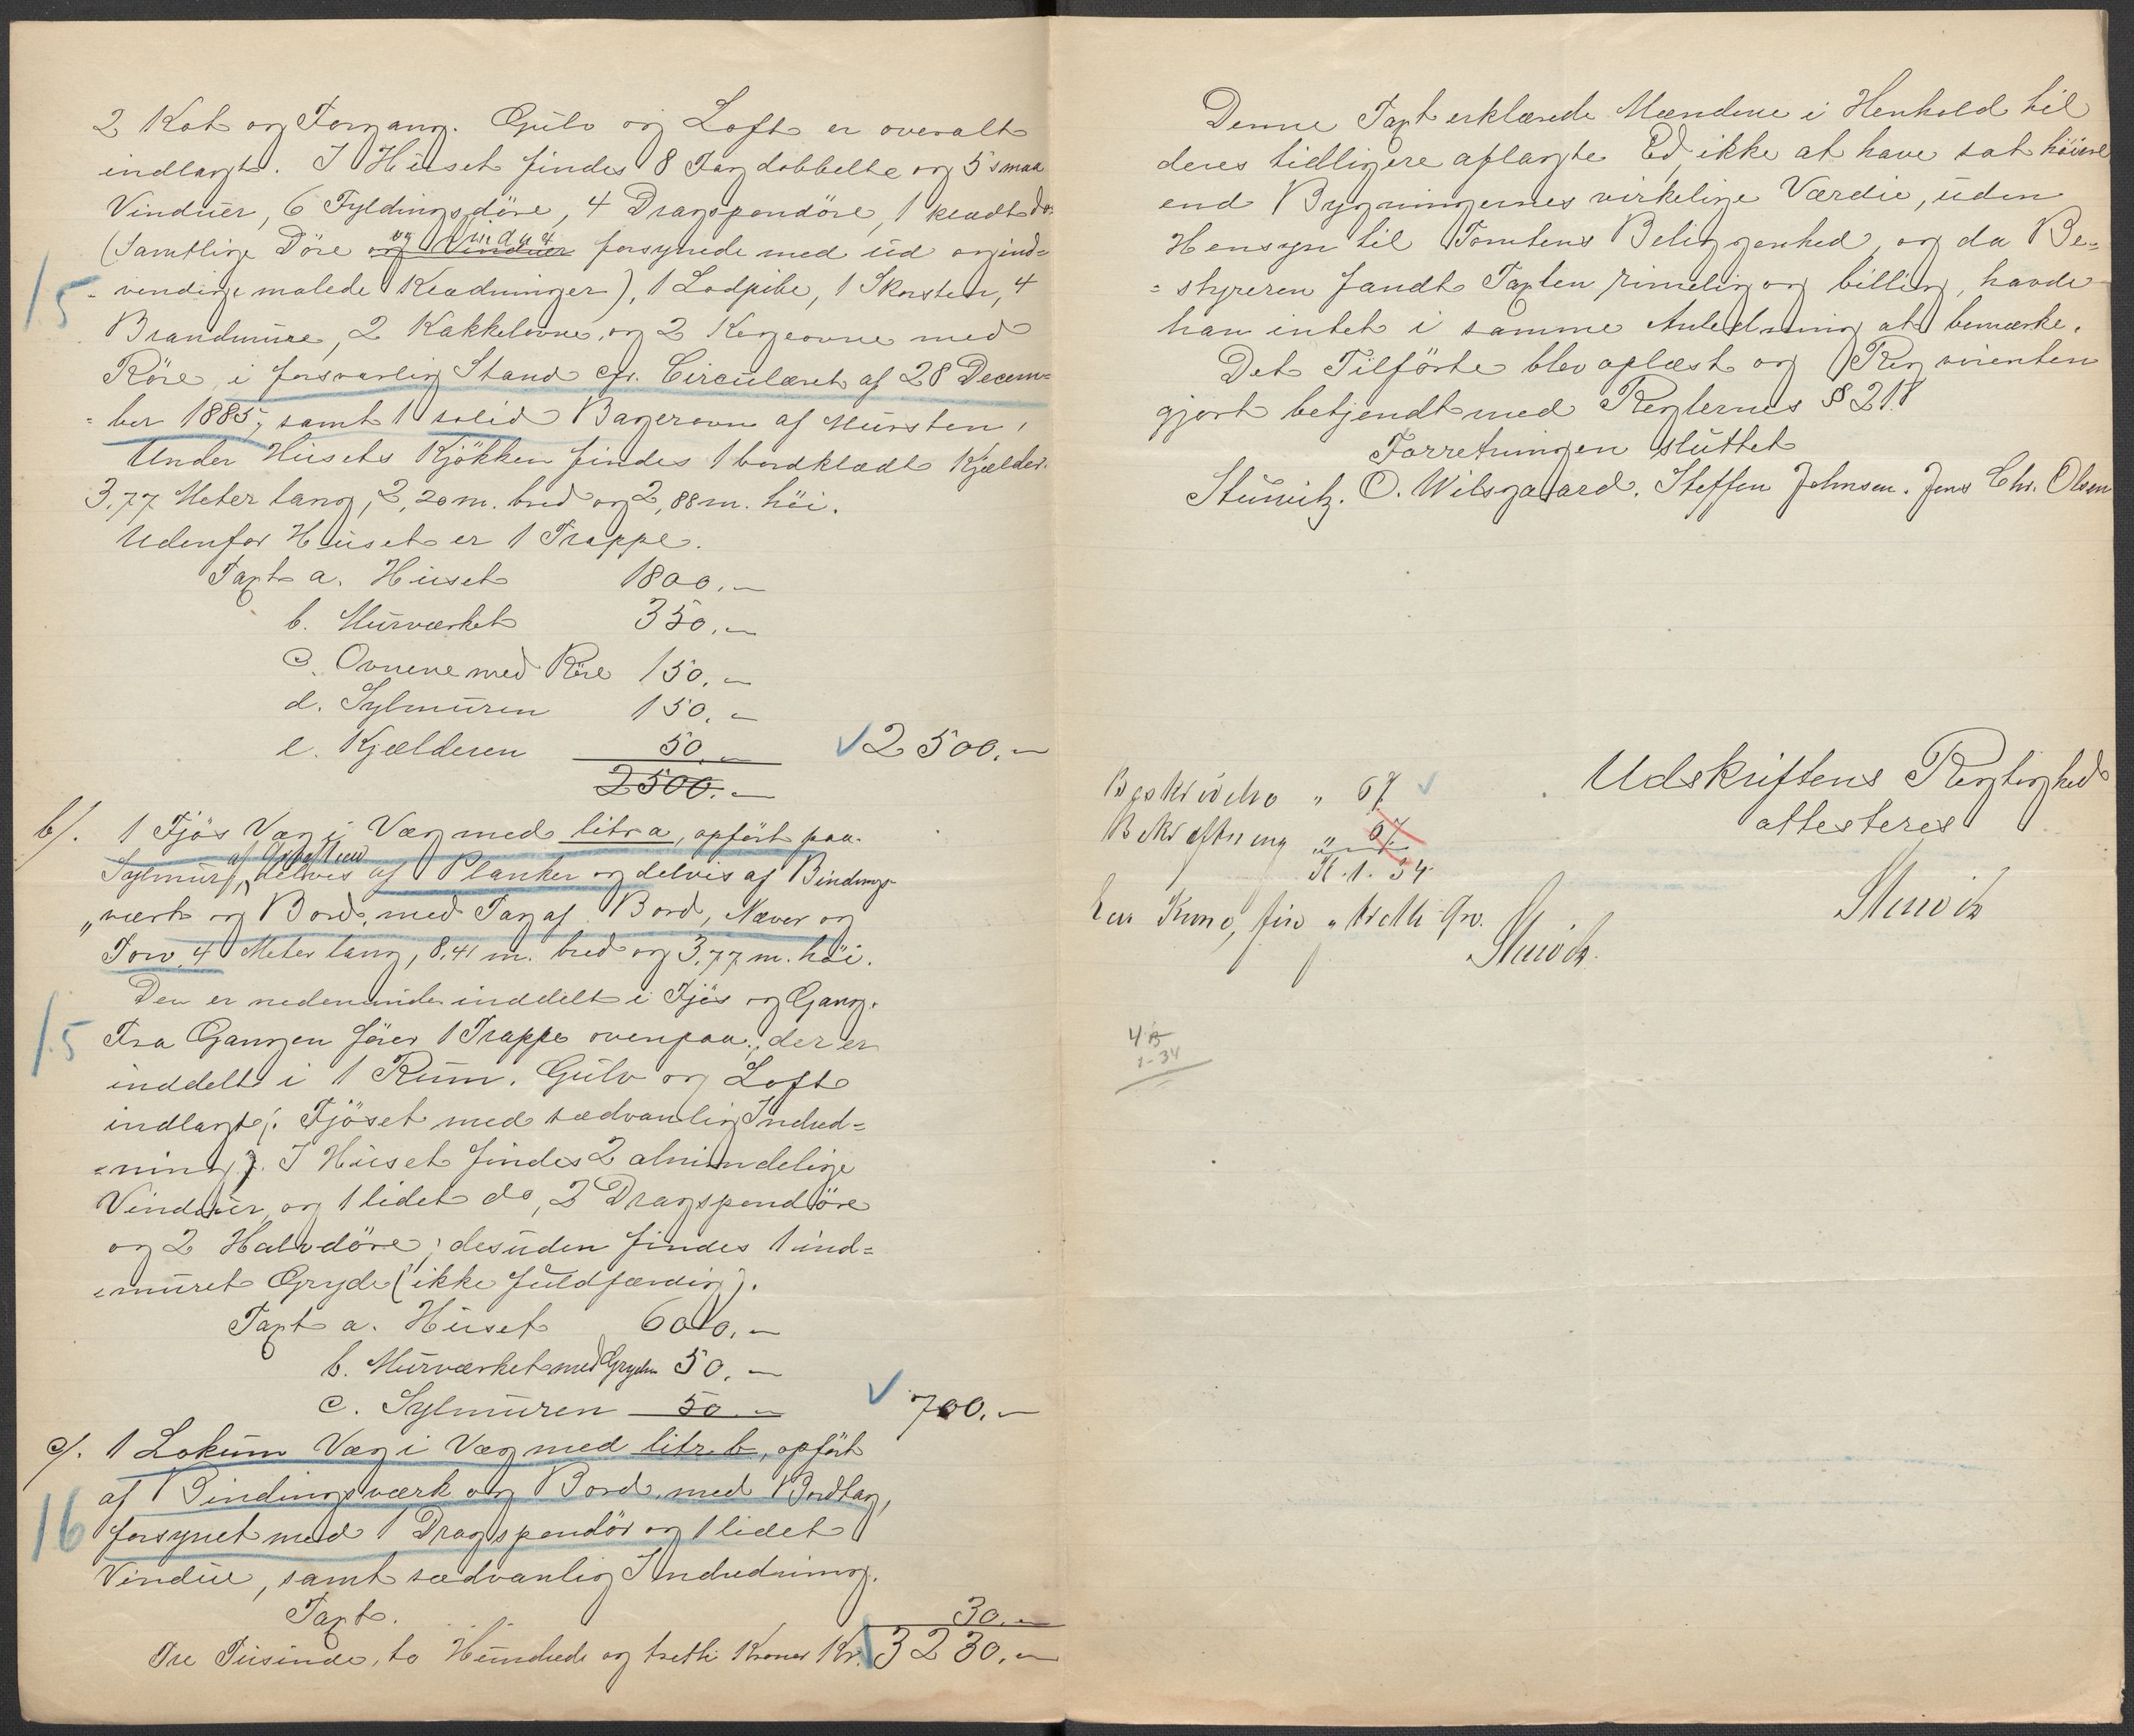 2 Kot og Forgang. Gulv og Loft er overalt
indlagt. I Huset findes 8 Fag dobbelte og 5 smaa
Vinduer, 6 Fyldingsdöre, 4 Dragspendöre, 1 klædt do.
(Samtlige Döre og Vinduer forsynede med ud og ind=
15
- vendige malede Klædninger), 1 Lodpibe, 1 Skorsten, 4
Brandmure, 2 Kakkelovne og 2 Kogeovne med
Röre, i forsvarlig Stand cfr. Circulæret af 28 Decem=
= ber 1885, samt 1 solid Bagerovn af Mursten,
Under Husets Kjökken findes 1 bordklædt Kjælder.
3,77 Meter lang, 2,20 m. bred og 2,88 m. höi.
Udenfor Huset er 1 Trappe.
Taxt a. Huset 1800.-
b. Murværket 350.-
c. Ovnene med Röre 150.-
d. Sylmuren 150.-
e. Kjælderen 50.- 2500.-
2500.-
b/. 1 Fjös Væg i Væg med litra a, opfört paa
Sylmur af Graasteen, delvis af Planker og delvis af Bindings-
„værk og Bord, med Tag af Bord, Næver og
Torv, 4 Meter lang, 8,41 m. bred og 3,77 m. höi.
Den er nedenunder inddelt i Fjös og Gang.
15
Fra Gangen förer 1 Trappe ovenpaa, der er
inddelt i 1 Rum. Gulv og Loft
indlagt; Fjöset med sædvanlig Indred=
=ning. I Huset findes 2 almindelige
Vinduer, og 1 lidet do, 2 Dragspendöre
og 2 Halvdöre; desuden findes 1 ind=
=muret Gryde (ikke fuldfærdig).
Taxt a. Huset 600.-
b. Murværket med Gryden 50.-
c. Sylmuren 50.- 700.-
c/. 1 Lokum Væg i Væg med litr. b, opfört
af Bindingsværk og Bord, med Bordtag,
16
forsynet med 1 Dragspendör og 1 lidet
Vindue, samt sædvanlig Indredning.
Taxt. 30.-
Tre Tusinde, to Hundrede og tretti Kroner Kr. 3230.-
Denne Taxt erklærede Mændene i Henhold til
deres tidligere aflagte Ed, ikke at have sat höiere
end Bygningernes virkelige Værdie, uden
Hensyn til Tomtens Beliggenhed, og da Be=
= styreren fandt Taxten rimelig og billig, havde
han intet i samme Anledning at bemærke.
Det Tilförte blev oplæst og Rekvirenten
gjort bekjendt med Reglernes § 21.
Forretningen sluttet
Stuwitz. O. Wilsgaard. Steffen Johnsen. Jens Chr. Olsen
Udskriftens Rigtighed
attesteres
Stuwitz
Beskrivelse " 67
Bekræftning " 67
Kr. 1. 34
Een Krone, fire " tretti Øre.
Stuwitz.
1-34